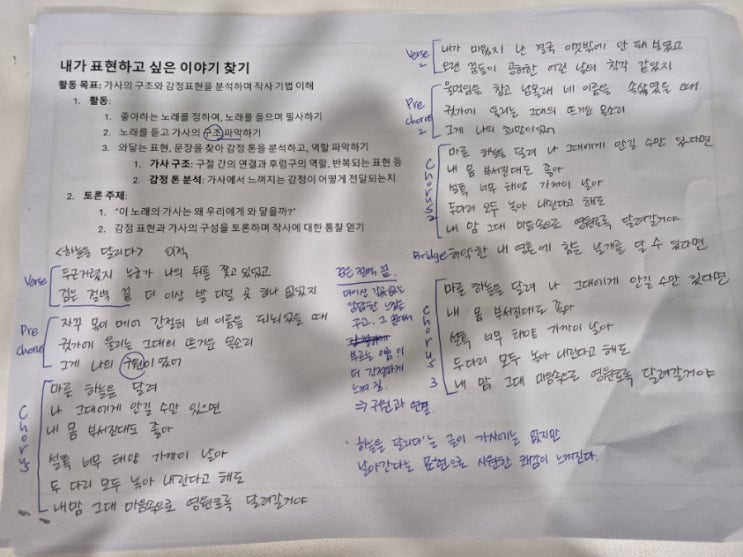 내가 표현하고 싶은 이야기 찾기
활동 목표: 가사의 구조와 감정표현을 분석하며 작사 기법 이해
1. 활동:
1. 좋아하는 노래를 정하여, 노래를 들으며 필사하기
2. 노래를 듣고 가사의 구조 파악하기
3. 와닿는 표현, 문장을 찾아 감정 톤을 분석하고, 역할 파악하기
1. 가사 구조: 구절 간의 연결과 후렴구의 역할, 반복되는 표현 등
2. 감정 톤 분석: 가사에서 느껴지는 감정이 어떻게 전달되는지
2. 토론 주제:
1. "이 노래의 가사는 왜 우리에게 와 닿을까?"
2. 감정 표현과 가사의 구성을 토론하며 작사에 대한 통찰 얻기
<하늘을 달리다> 이적
Verse
두근거렸지 누군가 나의 뒤를 쫓고 있었고
검은 절벽 끝 더 이상 발 디딜 곳 하나 없었지
Pre
chorus
자꾸 목이 메어 간절히 네 이름을 되뇌었을 때
귓가에 울리는 그대의 뜨거운 목소리
그게 나의 구원이었어
Chorus
마른 하늘을 달려
나 그대에게 안길 수만 있으면
내 몸 부서진대도 좋아
설혹 너무 태양 가까이 날아
두 다리 모두 녹아 내린다고 해도
내맘 그대 마음속으로 영원토록 달려갈거야
검은 절벽 끝
더이상 갈곳없는
느낌을
주고, 그 
부르는 이름이
더 간절하게
느껴짐.
⇒ 구원과 연결.
Verse
2
내가 미웠지 난 결국 이것밖에 안 돼 보였고
오랜 꿈들이 공허한 어린 날의 착각 같았지
Pre
chorus
2
울먹임을 참고 남몰래 네 이름을 속삭였을 때
귓가에 울리는 그대의 뜨거운 목소리
그게 나의 희망이었어
Chorus 2
마른 하늘을 달려 나 그대에게 안길 수만 있다면
내 몸 부서진대도 좋아
설혹 너무 태양 가까이 날아
두다리 모두 녹아 내린다고 해도
내 맘 그대 마음속으로 영원토록 달려갈거야
Bridge 허약한 내 영혼에 힘을 날개를 달 수 있다면
Chorus 3
마른 하늘을 달려 나 그대에게 안길 수만 있다면
내 몸 부서진대도 좋아
설혹 너무 태양 가까이 날아
두다리 모두 녹아 내린다고 해도
내 맘 그대 마음속으로 영원토록 달려갈거야
· 하늘을 달리다'는 글이 가사에는 없지만
날아간다는 표현으로 시원한 쾌감이 느껴진다.